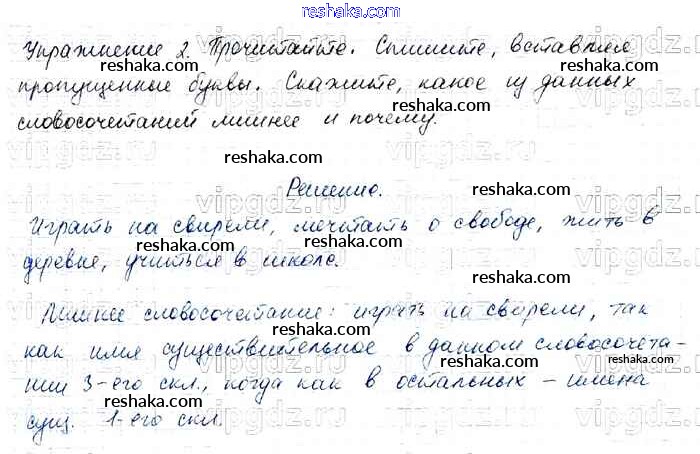 reshaka.com
Упражнение 2. Прочитайте. Спишите, вставляя
reshaka.com reshaka.com
пропущенные буквы. Скажите, какое из данных
словосочетаний лишнее и почему.
reshaka.com
Решение.
reshaka.com
Играть на свирели, мечтать о свободе, жить в
reshaka.com
деревне, учиться в школе.
reshaka.com
Лишнее словосочетание: играть на свирели, так
reshaka.com
как имя существительное в данном словосочета-
reshaka.com
нии 3-его скл., когда как в остальных – имена
reshaka.com
сущ. 1-его скл.
reshaka.com